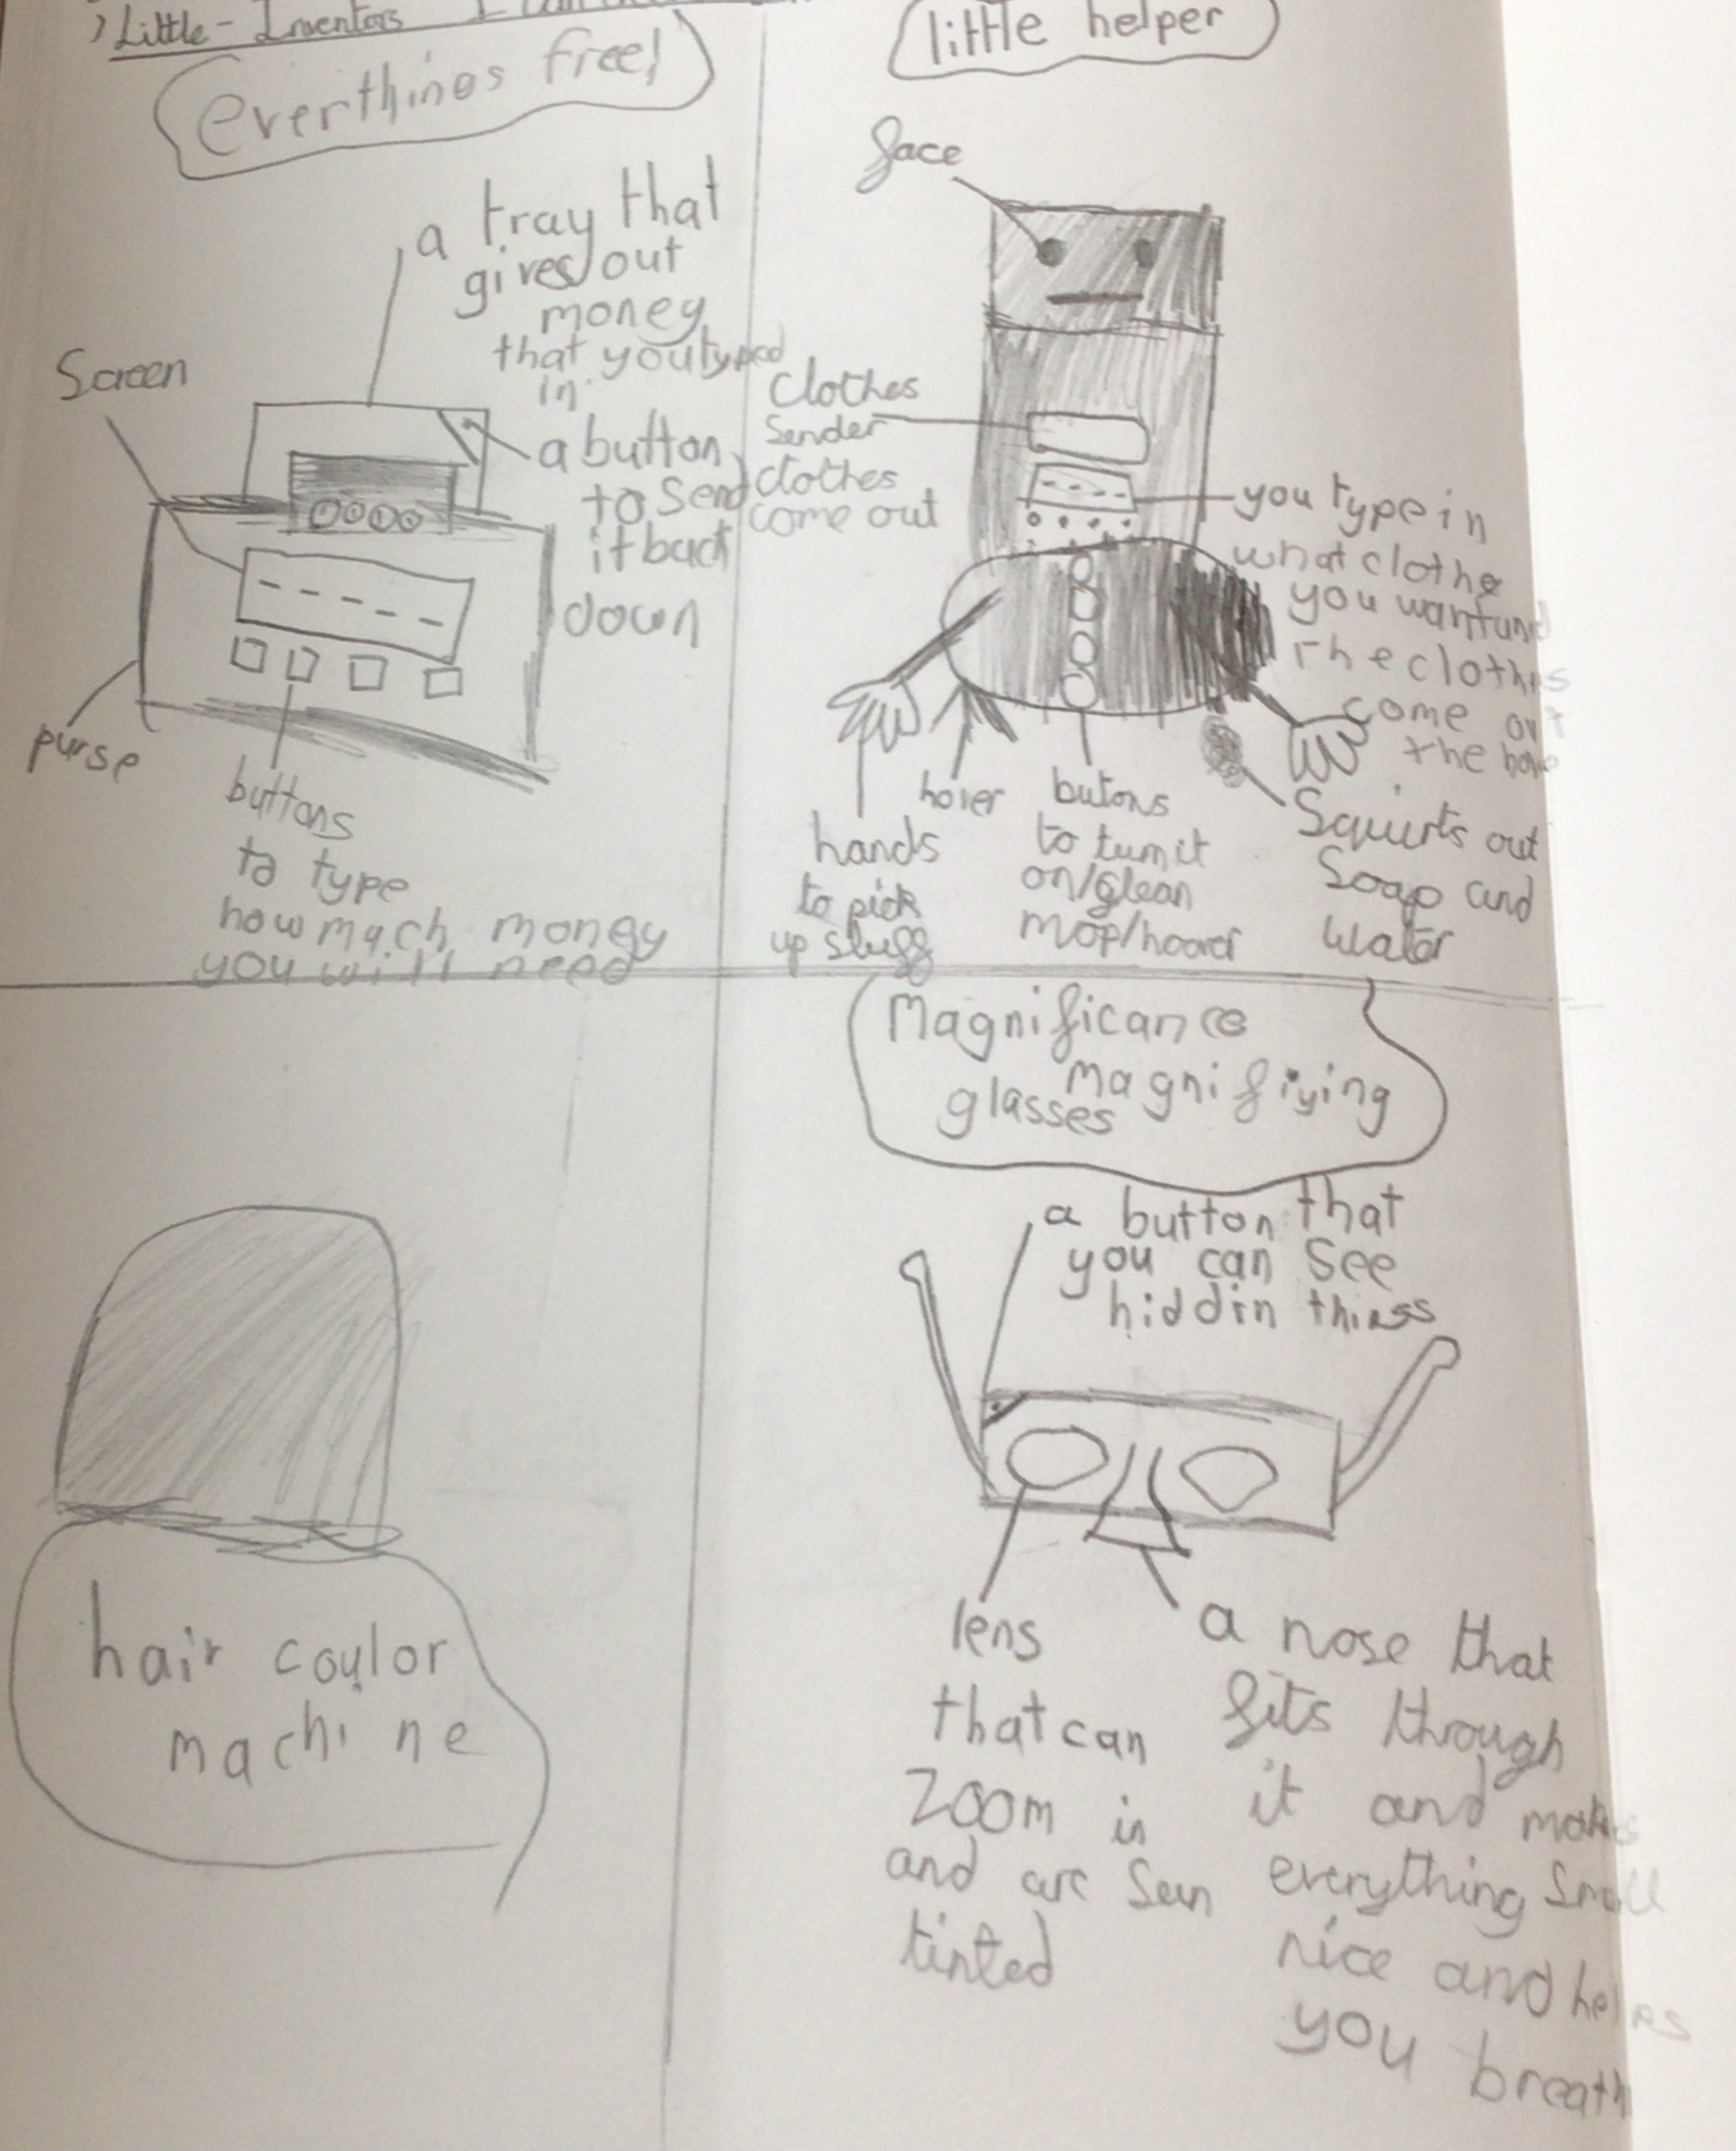 Little-Inventors I can
everthings free!
a tray that
gives out
money
that you typed
in.
Screen
a button
to send
it back
down
purse
buttons
to type
how much money
you will need
little helper
face
Clothes
Sender
clothes
come out
you type in
what clothe
you want and
the clothes
come out
the hole
hands
to pick
up stuff
hover
butons
to turn it
on/clean
mop/hoover
Squirts out
Soap and
water
hair coulor
machine
Magnificance
magnifiying
glasses
a button that
you can see
hiddin things
lens
that can
zoom in
and are Sun
tinted
a nose that
fits through
it and makes
everything smell
nice and helps
you breath